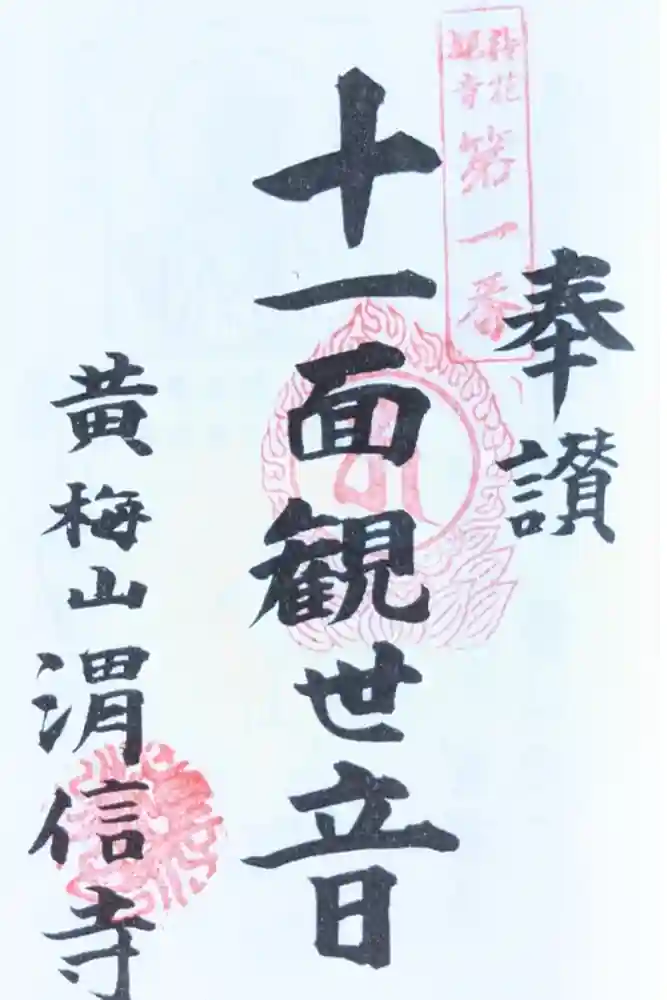 奉讃
観音
第一番
十一面観世音
黄梅山渭信寺